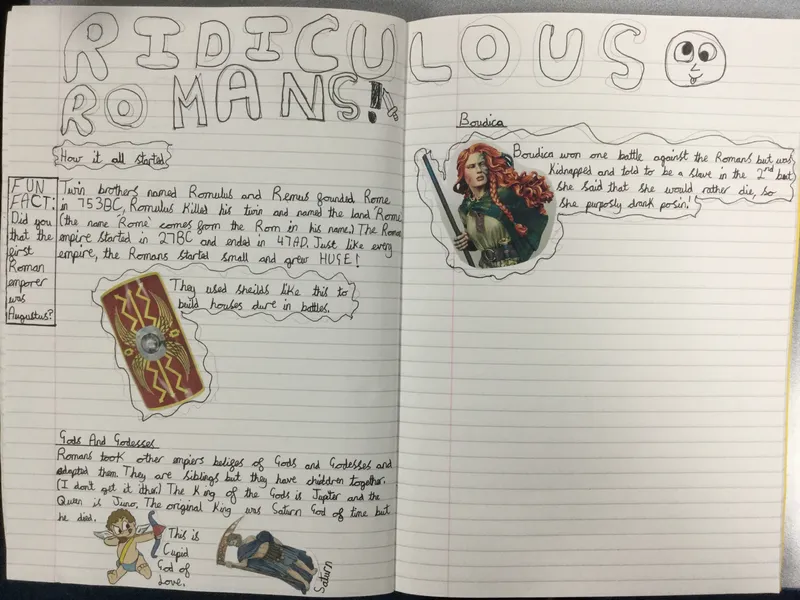 RIDICULOUS
ROMANS!
How it all started
FUN
FACT:
Did you
that the
first
Roman
emporer
was
Augustus?
Twin brothers named Romulus and Remus founded Rome
in 753BC, Romulus killed his twin and named the land 'Rome
(the name 'Rome' comes from the Rom in his name.) The Roman
empire started in 27BC and ended in 47AD. Just like every
empire, the Romans started small and grew HUGE!
They used sheilds like this to
build houses dure in battles.
Gods And Godesses
Romans took other empiers beliges of Gods and Godesses and
adapted them. They are siblings but they have children together.
(I don't get it ither.) The King of the Gods is Jupter and the
Queen is Juno. The original King was Saturn God of time but
he died.
This is
Cupid
God of
Love.
Saturn
Boudica
Boudica won one battle against the Romans but was
Kidnapped and told to be a slave in the 2nd but
she said that she would rather die, so
she purposly drank posin!